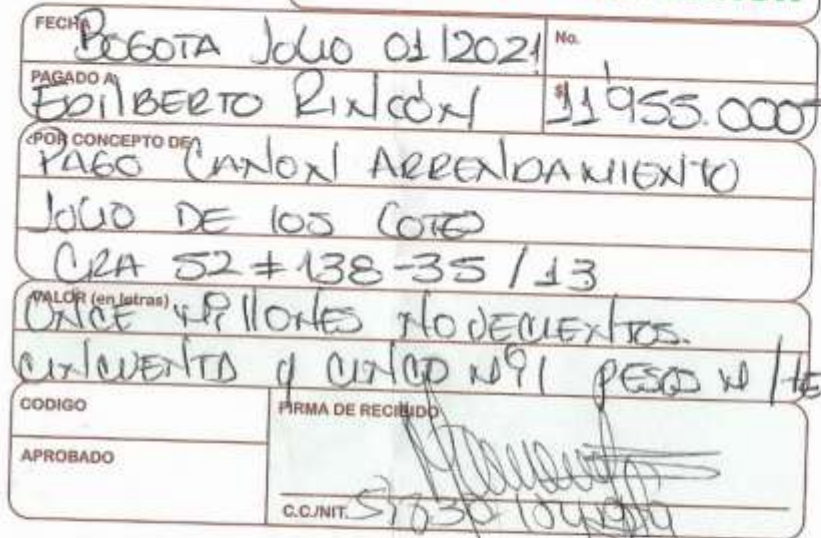 FECHA BOGOTA JULIO 01/2021 No.
PAGADO A EDILBERTO RINCÓN $ 11'955.000
POR CONCEPTO DE
PAGO CANON ARRENDAMIENTO
JULIO DE LOS LOTES
CRA 52 # 138-35 / 13
VALOR (en letras)
ONCE MILLONES NOVECIENTOS.
CINCUENTA y CINCO MIL PESOS M/TE
CODIGO FIRMA DE RECIBIDO
APROBADO
C.C./NIT.